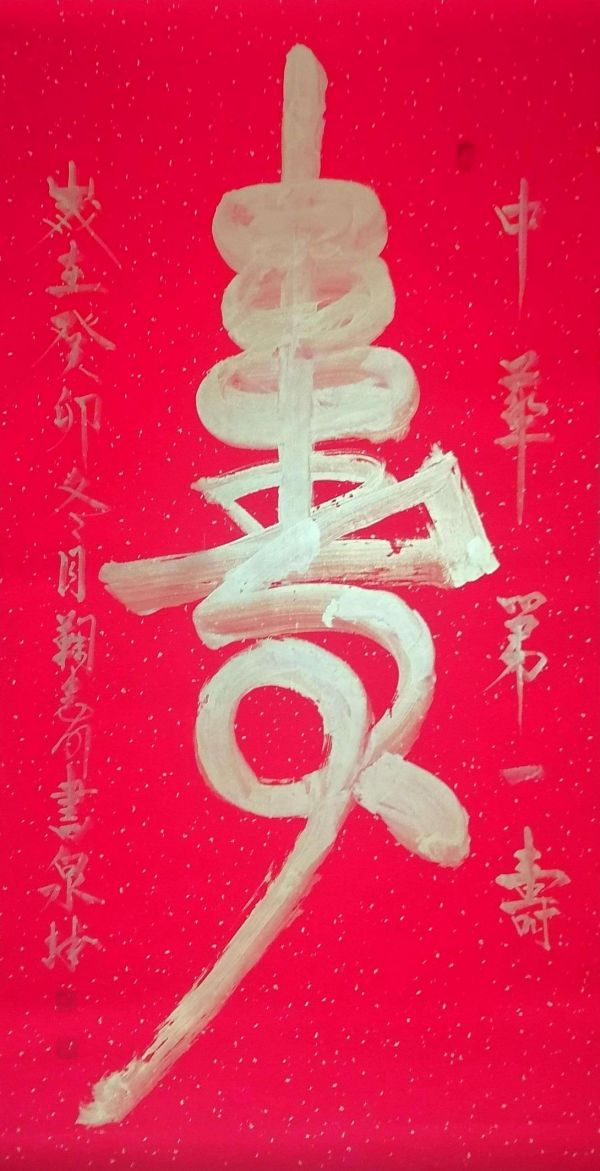 中華第一壽
壽
歲在癸卯冬月鞠書泉城